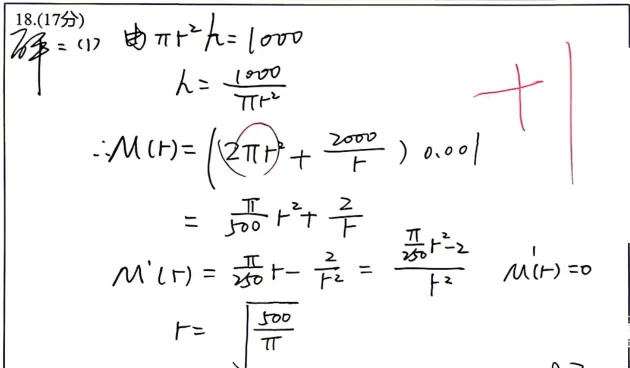 18.(17分)
解:(1) 由πr²h=1000
h=1000/(πr²)
∴M(r)=(2πr²+2000/r)0.001
=π/500 r²+2/r
M'(r)=π/250 r-2/r²=(π/250 r²-2)/r² M'(r)=0
r=√(500/π)
+1